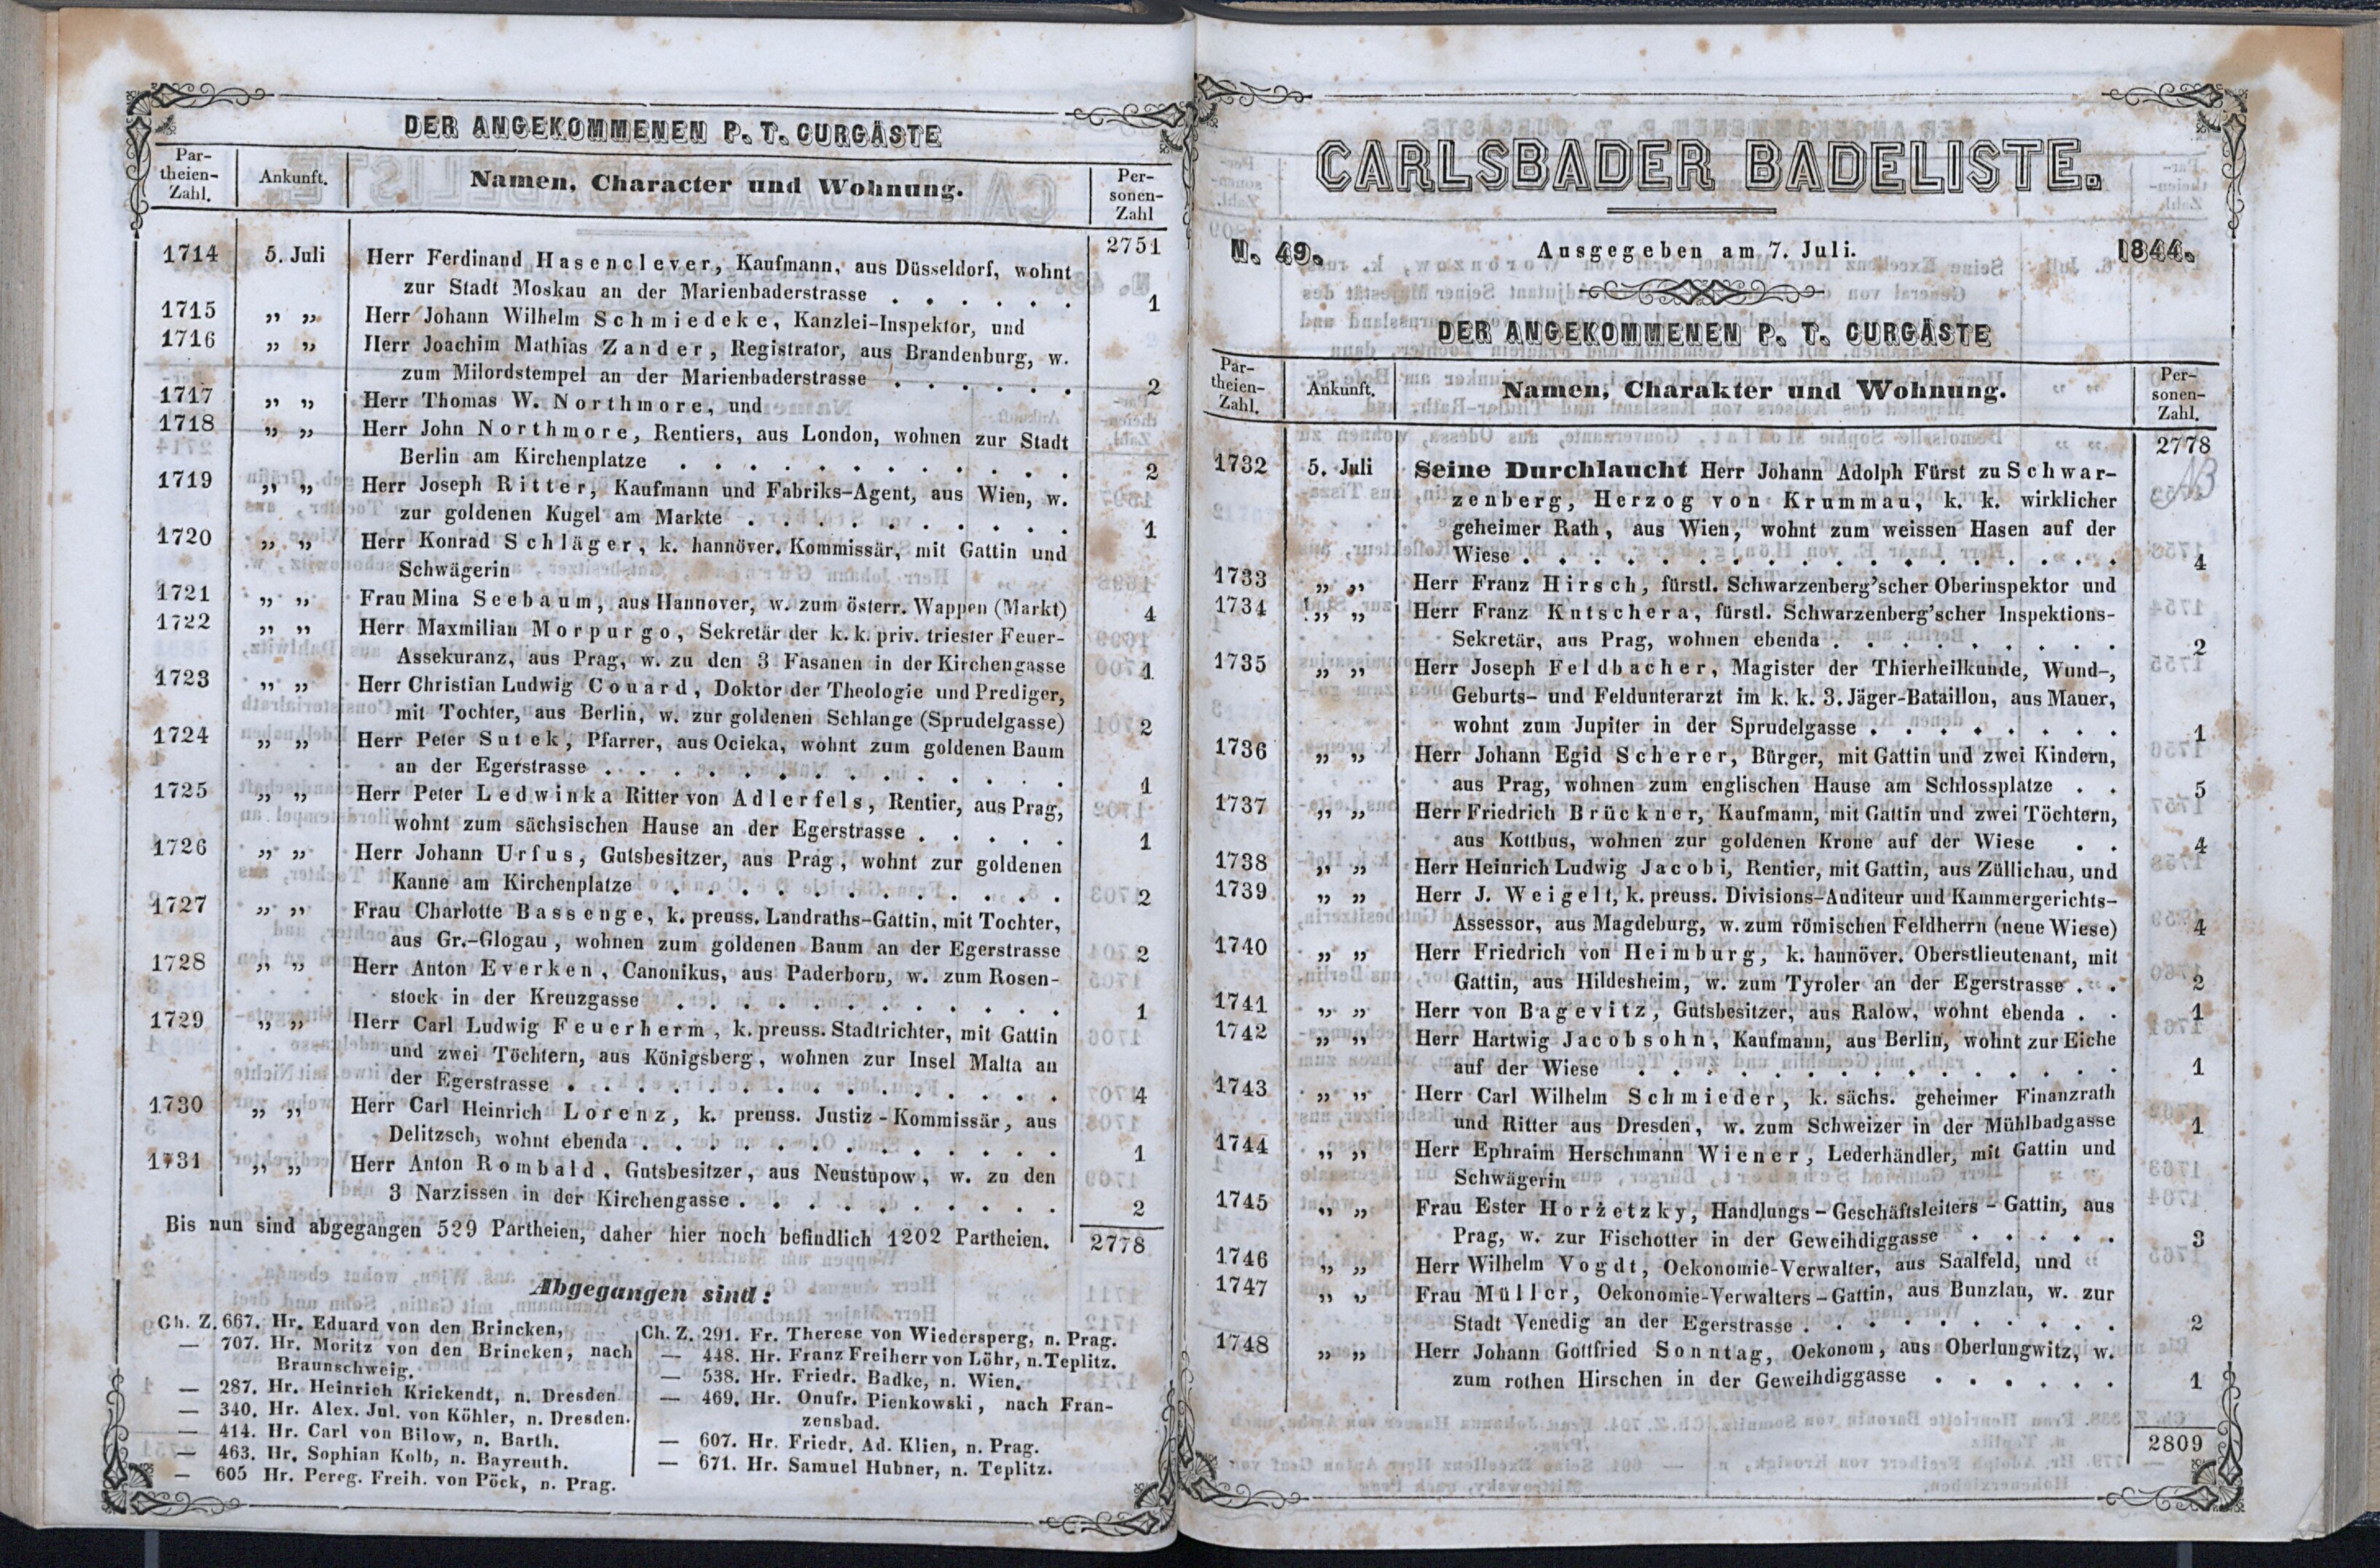 DER ANGEKOMMENEN P. T. CURGÄSTE
Par-
theien-
Zahl.
Ankunft.
Namen, Character und Wohnung.
Per-
sonen-
Zahl
2751
1714 5. Juli Herr Ferdinand Hasenclever, Kaufmann, aus Düsseldorf, wohnt
zur Stadt Moskau an der Marienbaderstrasse . . . . . . 1
1715 „ „ Herr Johann Wilhelm Schmiedeke, Kanzlei-Inspektor, und
1716 „ „ Herr Joachim Mathias Zander, Registrator, aus Brandenburg, w.
zum Milordstempel an der Marienbaderstrasse . . . . . . 2
1717 „ „ Herr Thomas W. Northmore, und
1718 „ „ Herr John Northmore, Rentiers, aus London, wohnen zur Stadt
Berlin am Kirchenplatze . . . . . . . . . . . . 2
1719 „ „ Herr Joseph Ritter, Kaufmann und Fabriks-Agent, aus Wien, w.
zur goldenen Kugel am Markte . . . . . . . . . . 1
1720 „ „ Herr Konrad Schläger, k. hannöver. Kommissär, mit Gattin und
Schwägerin
1721 „ „ Frau Mina Seebaum, aus Hannover, w. zum österr. Wappen (Markt) 4
1722 „ „ Herr Maxmilian Morpurgo, Sekretär der k. k. priv. triester Feuer-
Assekuranz, aus Prag, w. zu den 3 Fasanen in der Kirchengasse 1
1723 „ „ Herr Christian Ludwig Couard, Doktor der Theologie und Prediger,
mit Tochter, aus Berlin, w. zur goldenen Schlange (Sprudelgasse) 2
1724 „ „ Herr Peter Sutek, Pfarrer, aus Ocieka, wohnt zum goldenen Baum
an der Egerstrasse . . . . . . . . . . . . . . 1
1725 „ „ Herr Peter Ledwinka Ritter von Adlerfels, Rentier, aus Prag,
wohnt zum sächsischen Hause an der Egerstrasse . . . . . 1
1726 „ „ Herr Johann Ursus, Gutsbesitzer, aus Prag, wohnt zur goldenen
Kanne am Kirchenplatze . . . . . . . . . . . . 2
1727 „ „ Frau Charlotte Bassenge, k. preuss. Landraths-Gattin, mit Tochter,
aus Gr.-Glogau, wohnen zum goldenen Baum an der Egerstrasse 2
1728 „ „ Herr Anton Everken, Canonikus, aus Paderborn, w. zum Rosen-
stock in der Kreuzgasse . . . . . . . . . . . . 1
1729 „ „ Herr Carl Ludwig Feuerherm, k. preuss. Stadtrichter, mit Gattin
und zwei Töchtern, aus Königsberg, wohnen zur Insel Malta an
der Egerstrasse . . . . . . . . . . . . . . . 4
1730 „ „ Herr Carl Heinrich Lorenz, k. preuss. Justiz-Kommissär, aus
Delitzsch, wohnt ebenda . . . . . . . . . . . . . 1
1731 „ „ Herr Anton Rombald, Gutsbesitzer, aus Neustupow, w. zu den
3 Narzissen in der Kirchengasse . . . . . . . . . . 2
Bis nun sind abgegangen 529 Partheien, daher hier noch befindlich 1202 Partheien. 2778
Abgegangen sind:
Ch. Z. 667. Hr. Eduard von den Brincken,
— 707. Hr. Moritz von den Brincken, nach
Braunschweig.
— 287. Hr. Heinrich Krickendt, n. Dresden
— 340. Hr. Alex. Jul. von Köhler, n. Dresden.
— 414. Hr. Carl von Bilow, n. Barth.
— 463. Hr. Sophian Kolb, n. Bayreuth.
— 605 Hr. Pereg. Freih. von Pöck, n. Prag.
Ch. Z. 291. Fr. Therese von Wiedersperg, n. Prag.
— 448. Hr. Franz Freiherr von Löhr, n. Teplitz.
— 538. Hr. Friedr. Badke, n. Wien.
— 469. Hr. Onufr. Pienkowski, nach Fran-
zensbad.
— 607. Hr. Friedr. Ad. Klien, n. Prag.
— 671. Hr. Samuel Hubner, n. Teplitz.
CARLSBADER BADELISTE.
N. 49. Ausgegeben am 7. Juli. 1844.
DER ANGEKOMMENEN P. T. CURGÄSTE
Par-
theien-
Zahl.
Ankunft.
Namen, Charakter und Wohnung.
Per-
sonen-
Zahl.
2778
1732 5. Juli Seine Durchlaucht Herr Johann Adolph Fürst zu Schwar-
zenberg, Herzog von Krummau, k. k. wirklicher
geheimer Rath, aus Wien, wohnt zum weissen Hasen auf der
Wiese . . . . . . . . . . . . . . . . . . 4
1733 „ „ Herr Franz Hirsch, fürstl. Schwarzenberg'scher Oberinspektor und
1734 „ „ Herr Franz Kutschera, fürstl. Schwarzenberg'scher Inspektions-
Sekretär, aus Prag, wohnen ebenda . . . . . . . . . 2
1735 „ „ Herr Joseph Feldbacher, Magister der Thierheilkunde, Wund-,
Geburts- und Feldunterarzt im k. k. 3. Jäger-Bataillon, aus Mauer,
wohnt zum Jupiter in der Sprudelgasse . . . . . . . . 1
1736 „ „ Herr Johann Egid Scherer, Bürger, mit Gattin und zwei Kindern,
aus Prag, wohnen zum englischen Hause am Schlossplatze . . 5
1737 „ „ Herr Friedrich Brückner, Kaufmann, mit Gattin und zwei Töchtern,
aus Kottbus, wohnen zur goldenen Krone auf der Wiese . . 4
1738 „ „ Herr Heinrich Ludwig Jacobi, Rentier, mit Gattin, aus Züllichau, und
1739 „ „ Herr J. Weigelt, k. preuss. Divisions-Auditeur und Kammergerichts-
Assessor, aus Magdeburg, w. zum römischen Feldherrn (neue Wiese) 4
1740 „ „ Herr Friedrich von Heimburg, k. hannöver. Oberstlieutenant, mit
Gattin, aus Hildesheim, w. zum Tyroler an der Egerstrasse . . 2
1741 „ „ Herr von Bagevitz, Gutsbesitzer, aus Ralow, wohnt ebenda . . 1
1742 „ „ Herr Hartwig Jacobsohn, Kaufmann, aus Berlin, wohnt zur Eiche
auf der Wiese . . . . . . . . . . . . . . . 1
1743 „ „ Herr Carl Wilhelm Schmieder, k. sächs. geheimer Finanzrath
und Ritter aus Dresden, w. zum Schweizer in der Mühlbadgasse 1
1744 „ „ Herr Ephraim Herschmann Wiener, Lederhändler, mit Gattin und
Schwägerin
1745 „ „ Frau Ester Horżetzky, Handlungs-Geschäftsleiters-Gattin, aus
Prag, w. zur Fischotter in der Geweihdiggasse . . . . . 3
1746 „ „ Herr Wilhelm Vogdt, Oekonomie-Verwalter, aus Saalfeld, und
1747 „ „ Frau Müller, Oekonomie-Verwalters-Gattin, aus Bunzlau, w. zur
Stadt Venedig an der Egerstrasse . . . . . . . . . . 2
1748 „ „ Herr Johann Gottfried Sonntag, Oekonom, aus Oberlungwitz, w.
zum rothen Hirschen in der Geweihdiggasse . . . . . . 1
2809